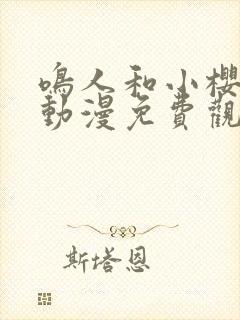 鳴人和小櫻
動漫免費觀
斯塔恩